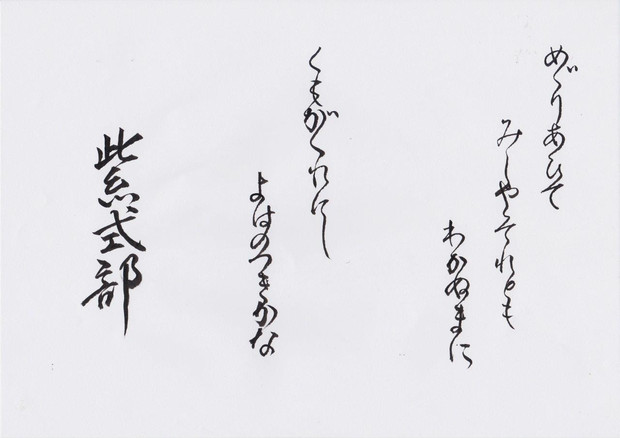 めぐりあひて
みしやそれとも
わかぬまに
くもがくれにし
よはのつきかな
紫式部